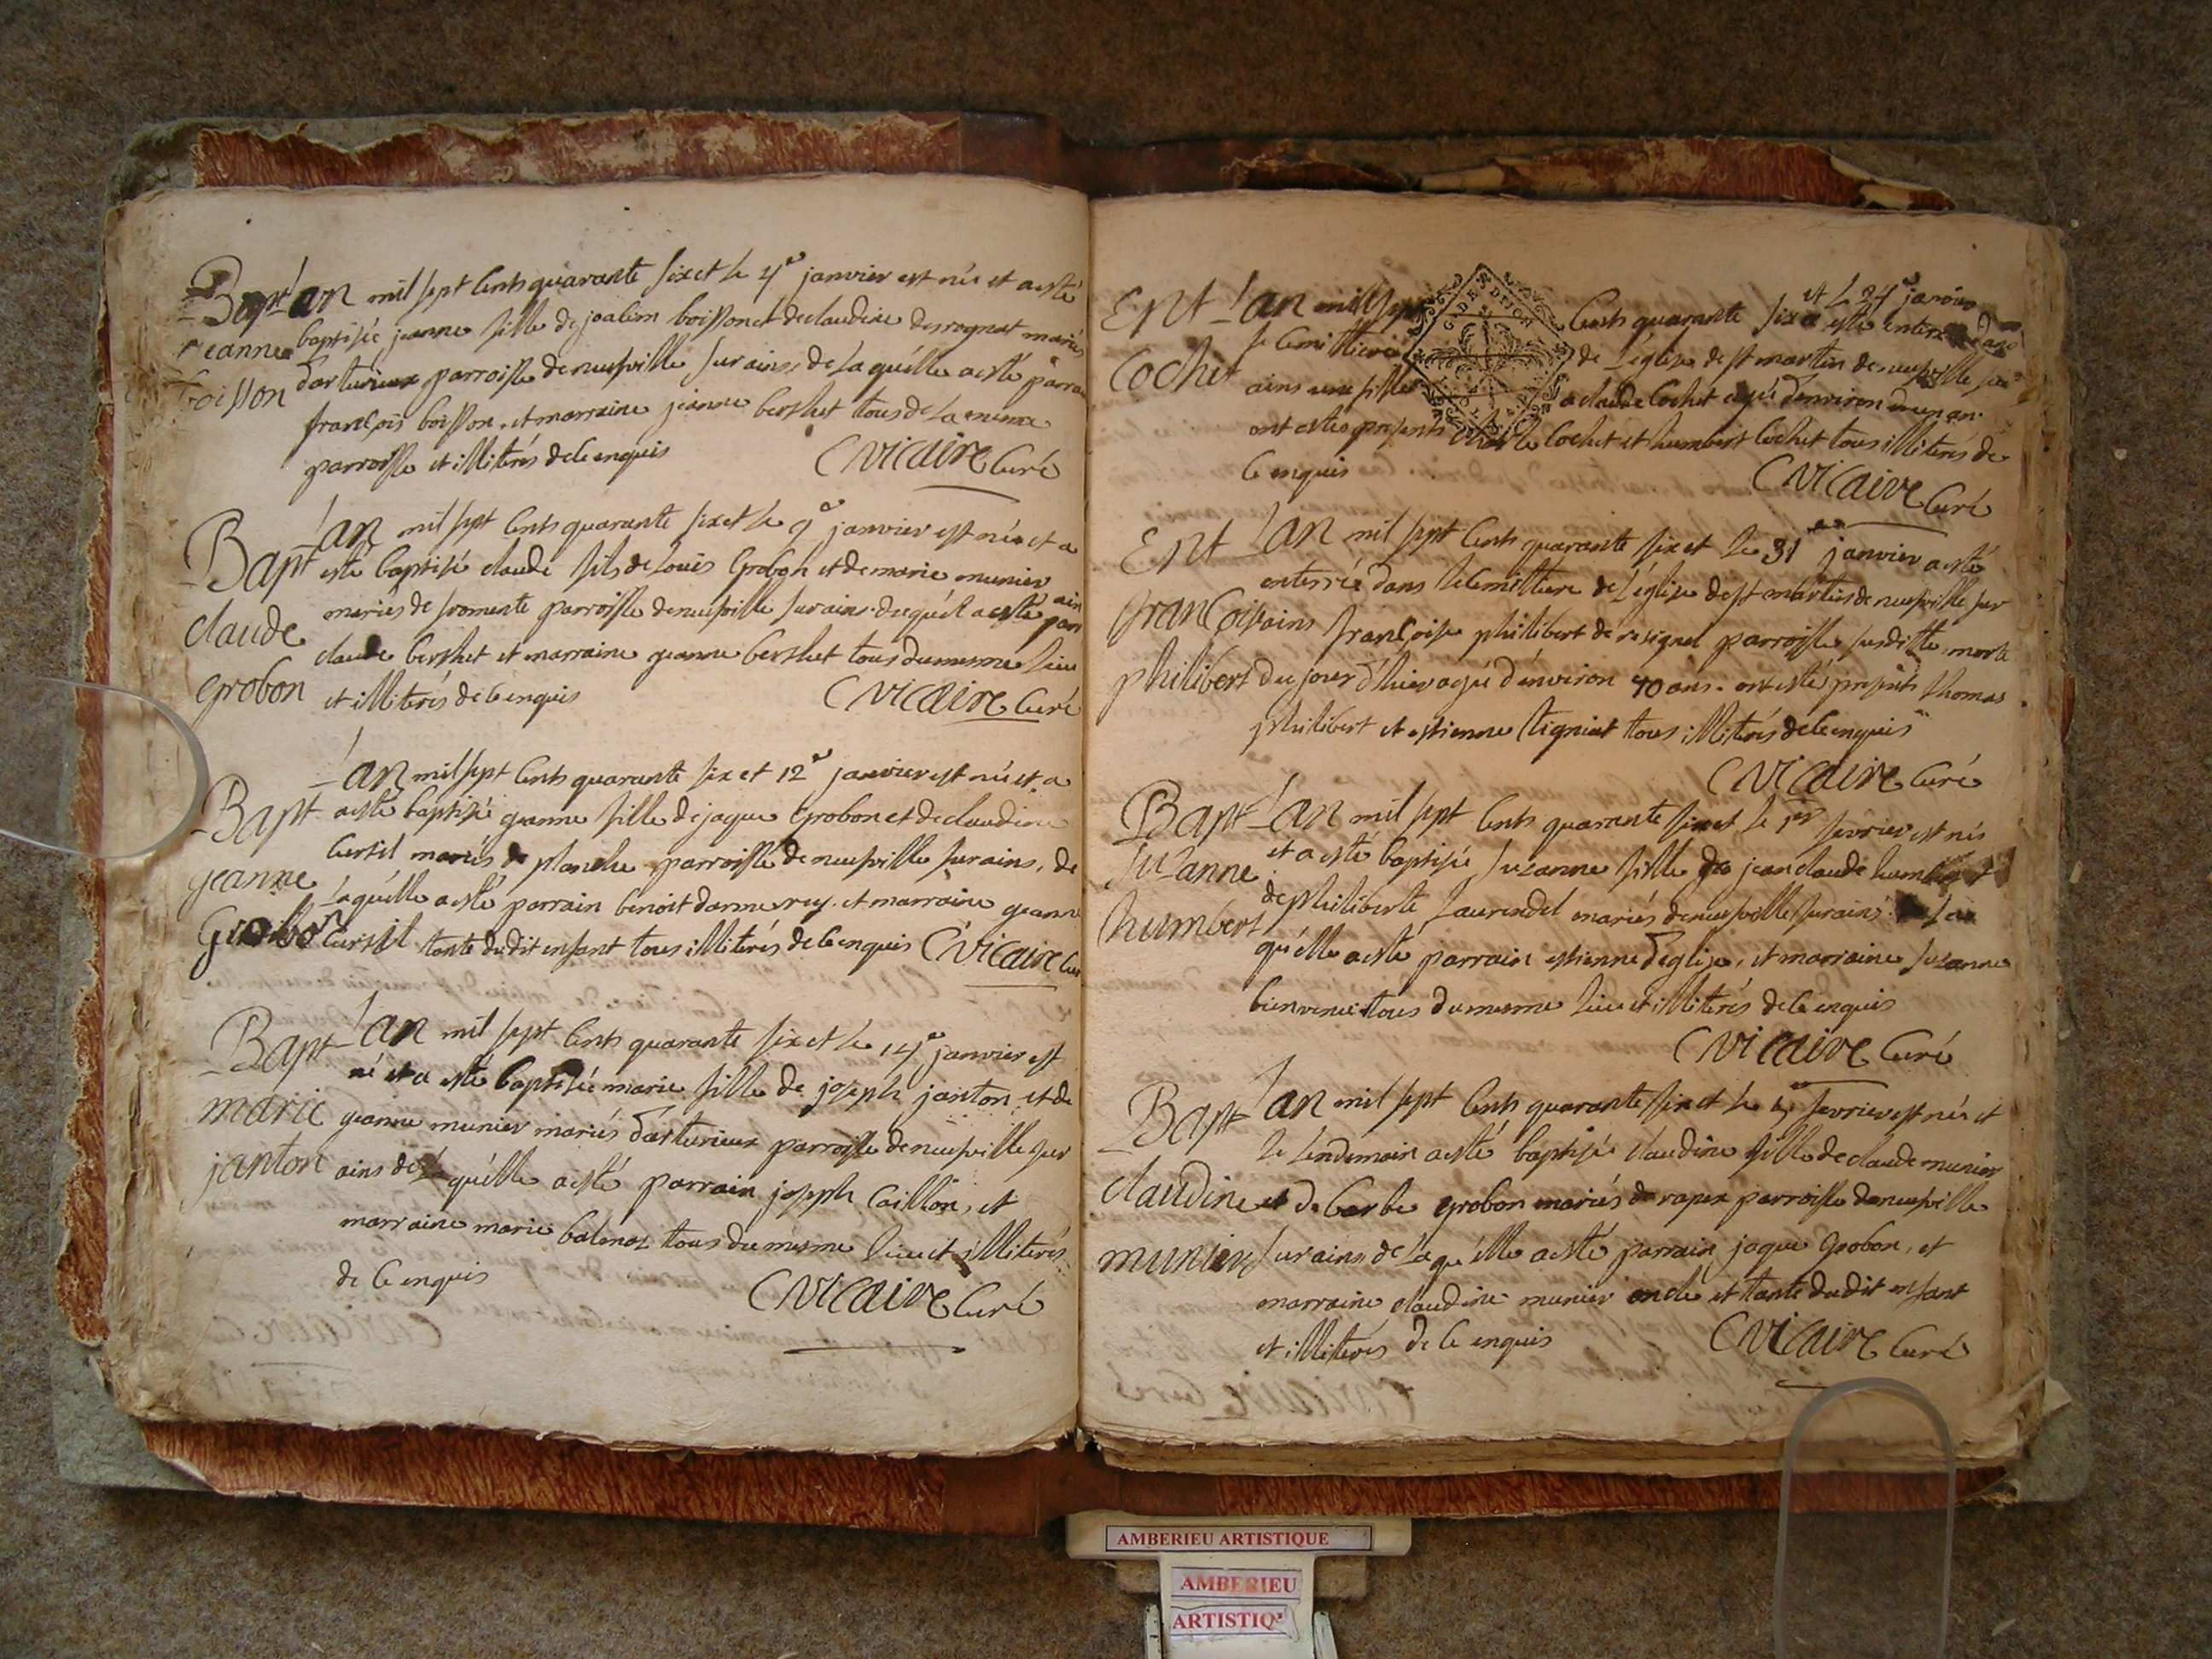 Bapt l'an mil sept cents quarante six et le 4e janvier est née et a esté
jeanne baptisée jeanne fille de joalim boisson et de claudine desrognat mariés
boisson d'arturieux parroisse de neufville sur ains, de laquélle a esté parrain
françois boisson, et marraine jeanne berthet tous de la mesme
parroisse et illiterés de ce enquis Cvicaire Curé
l'an mil sept cents quarante six et le 9e janvier est née et a
Bapt esté baptisé claude fils de Louis Grobon et de marie munier
mariés de fromente parroisse de neufville sur ains. duquél a esté parrain
claude claude berthet et marraine jeanne berthet tous du mesme lieu
grobon et illiterés de ce enquis Cvicaire Curé
l'an mil sept cents quarante six et 12e janvier est née et a
Bapt a esté baptisé jeanne fille de jaque Grobon et de claudine
Cursil mariés de planche parroisse de neufville sur ains, de
jeanne laquélle a esté parrain benoit dannerey et marraine jeanne
Grobon Cursil tante dudit enfant tous illiterés de ce enquis Cvicaire Cur
Bapt l'an mil sept cents quarante six et le 14e janvier est
né et a esté baptisée marie fille de joseph janton et de
marie jeanne munier mariés d'arturieux parroisse de neufville sur
janton ains de laquélle a esté parrain joseph Caillon, et
marraine marie balenoz tous du mesme lieu et illiterés
de ce enquis Cvicaire Curé
Ent l'an mil sept cents quarante six et le 24e janvier a esté enterré dans
le cemittiere de l'église de st martin de neufville sur
Cochet ains une fille a claude Cochet agée d'environ un an.
ont estés présents Cochet et humbert Cochet tous illiterés de
ce enquis Cvicaire Curé
Ent l'an mil sept cents quarante six et le 31e janvier a esté
enterrée dans le cemittiere de l'église de st martin de neufville sur
françoise ains françoise philibert de resignel parroisse susditte, morte
philibert du jour d'hier agée d'environ 40 ans. ont estés présents thomas
philibert et estienne tigniat tous illiterés de ce enquis
Cvicaire Curé
Bapt l'an mil sept cents quarante six et le 1er fevrier est née
suzanne et a esté baptisée suzanne fille de jean claude humbert et
de philiberte Laurendel mariés de neufville sur ains. de la
humbert quélle a esté parrain estienne déglise, et marraine suzanne
bienvenue tous du mesme lieu et illiterés de ce enquis
Cvicaire Curé
Bapt l'an mil sept cents quarante six et le fevrier est née et
le lendemain a esté baptisée claudine fille de claude munier
claudine et de barbe grobon mariés de rapex parroisse de neufville
munier sur ains de laquélle a esté parrain jaque Grobon, et
marraine claudine munier oncle et tante dudit enfant
et illiterés de ce enquis Cvicaire Curé
AMBERIEU ARTISTIQUE
AMBERIEU
ARTISTIQ